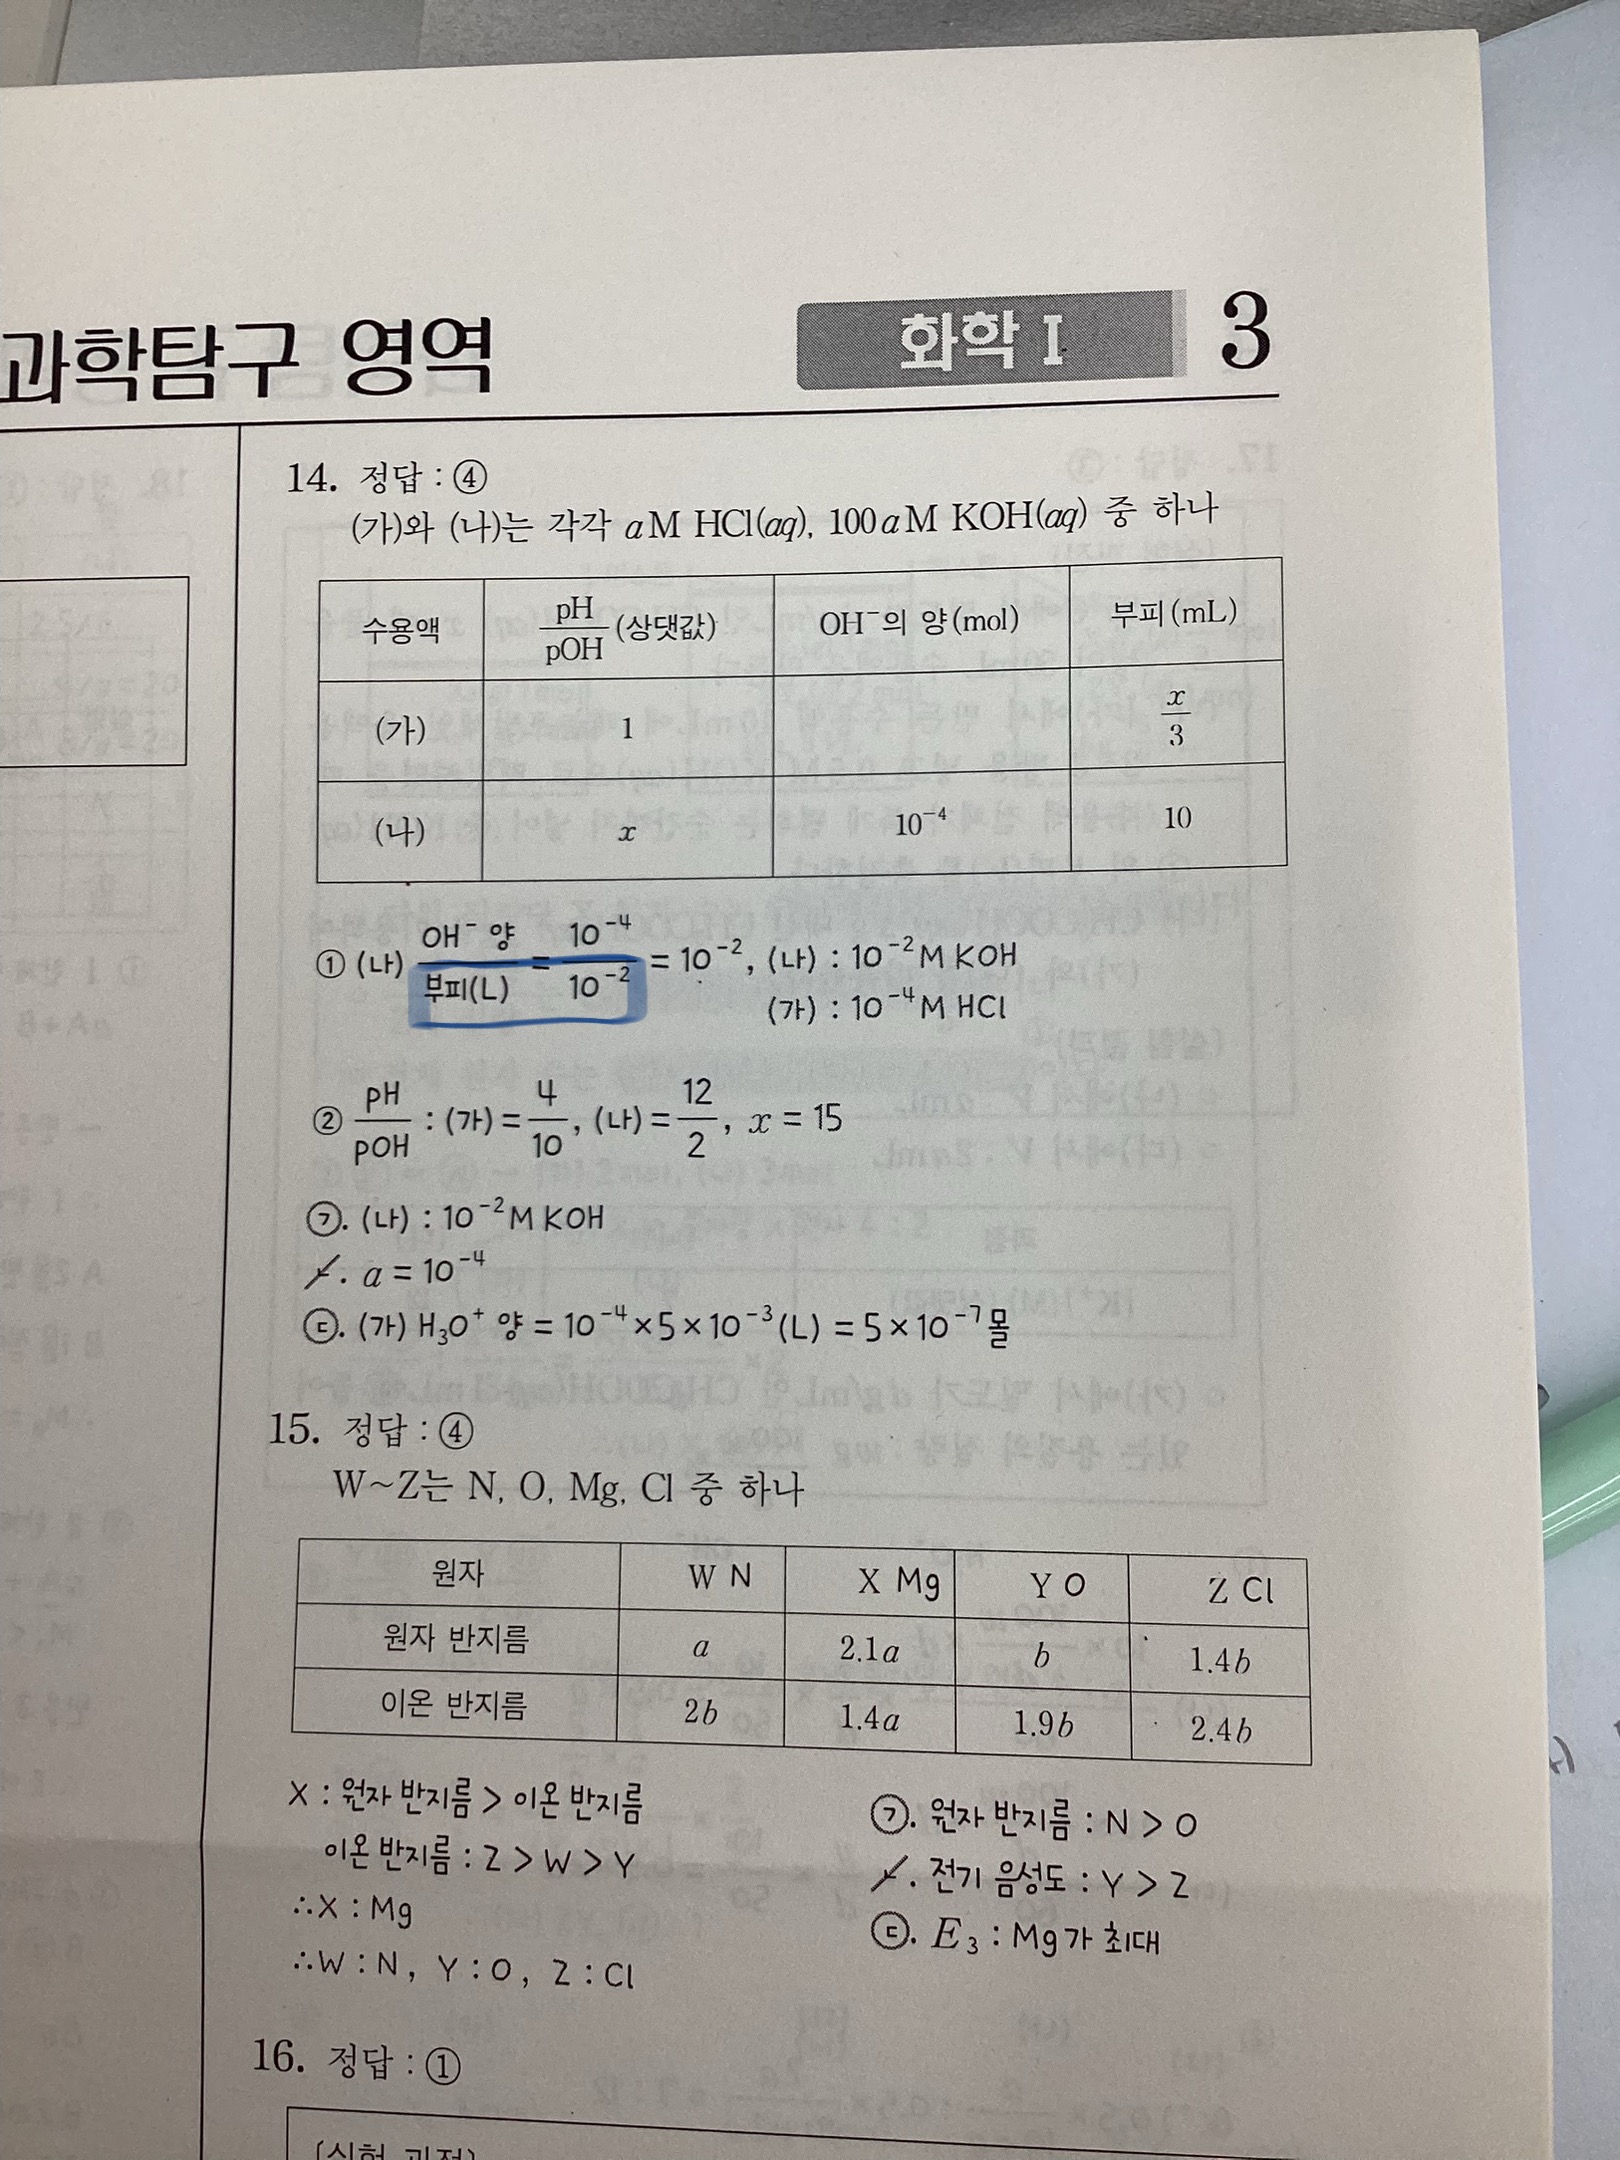 과학탐구 영역
화학 I
3
14. 정답 : ④
(가)와 (나)는 각각 aM HCl(aq), 100aM KOH(aq) 중 하나
수용액 pH/pOH (상댓값) OH⁻의 양(mol) 부피(mL)
(가) 1 x/3
(나) x 10⁻⁴ 10
① (나) OH⁻ 양/부피(L) = 10⁻⁴/10⁻² = 10⁻², (나) : 10⁻²M KOH
(가) : 10⁻⁴M HCl
② pH/pOH : (가) = 4/10, (나) = 12/2, x = 15
㉠. (나) : 10⁻²M KOH
ㄴ. a = 10⁻⁴
㉢. (가) H₃O⁺ 양 = 10⁻⁴×5×10⁻³(L) = 5×10⁻⁷몰
15. 정답 : ④
W~Z는 N, O, Mg, Cl 중 하나
원자 W N X Mg Y O Z Cl
원자 반지름 a 2.1a b 1.4b
이온 반지름 2b 1.4a 1.9b 2.4b
X : 원자 반지름 > 이온 반지름
이온 반지름 : Z > W > Y
∴X : Mg
∴W : N, Y : O, Z : Cl
㉠. 원자 반지름 : N > O
ㄴ. 전기 음성도 : Y > Z
㉢. E₃ : Mg가 최대
16. 정답 : ①
(실험 과정)